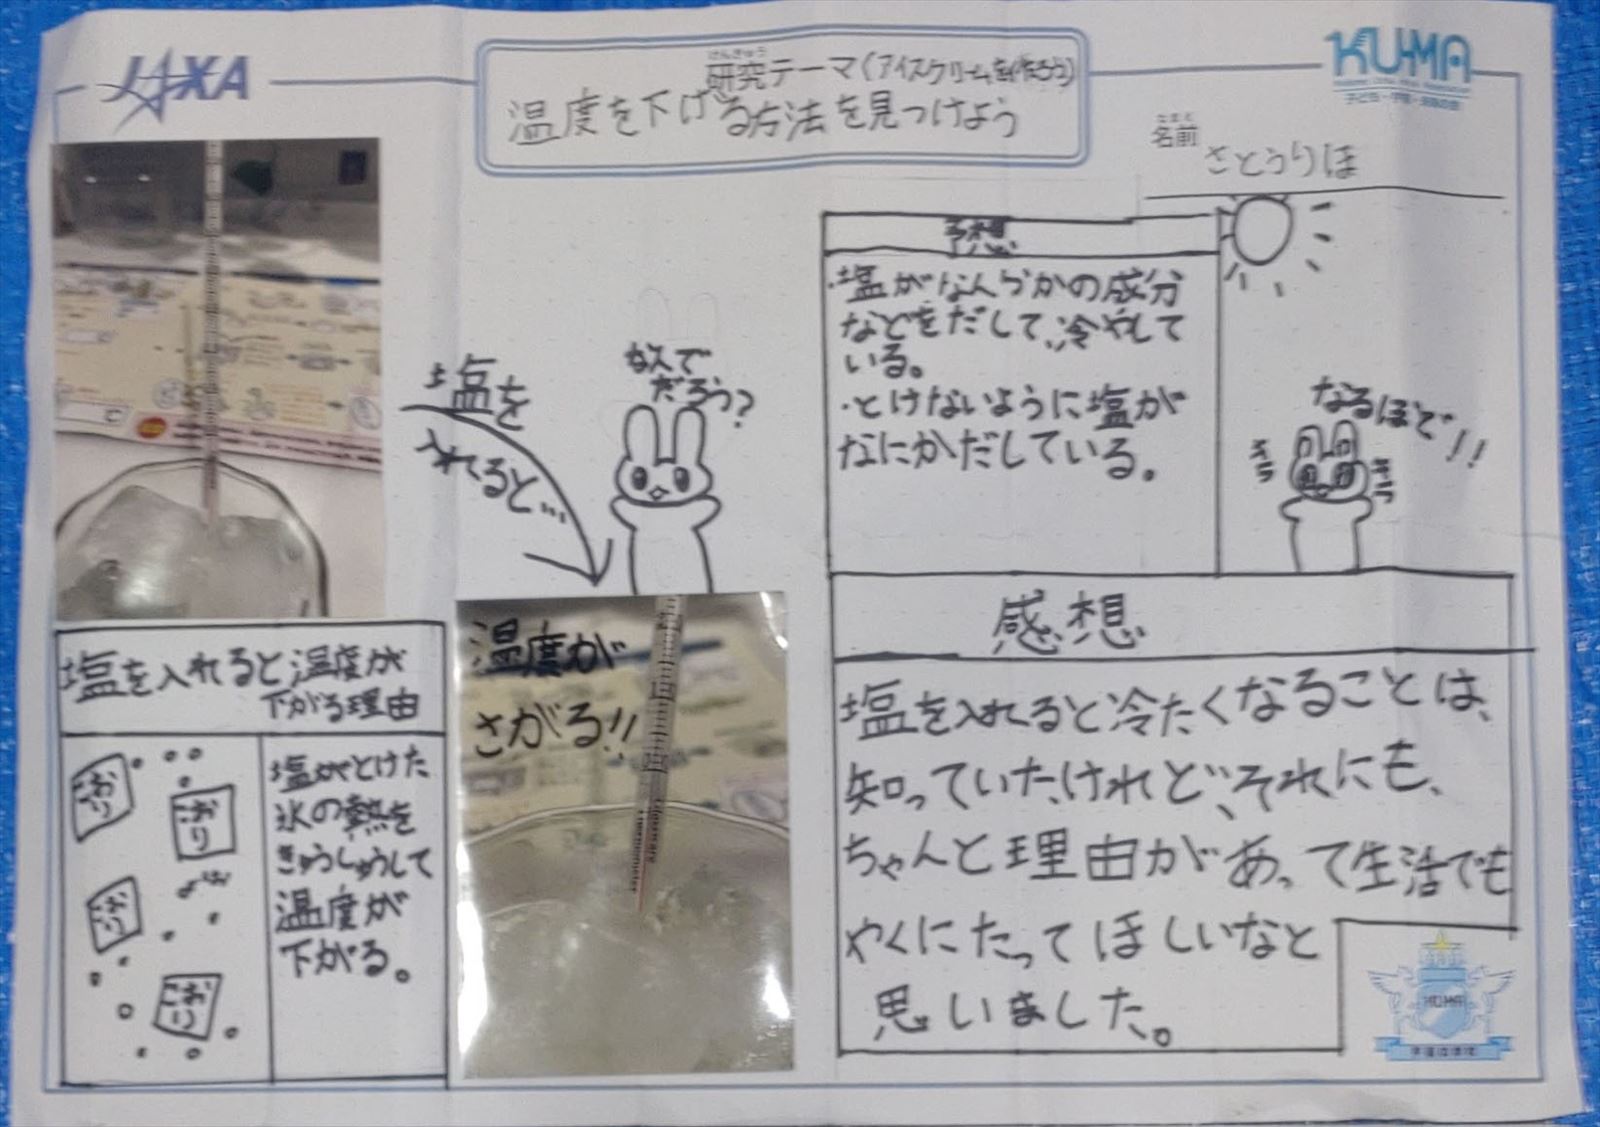 JAXA
けんきゅう
研究テーマ(アイスクリームを作ろう)
温度を下げる方法を見つけよう
KU-MA
子ども・宇宙・未来の会
なまえ
名前
さとうりほ
塩を
入れると…
なんで
だろう?
予想
・塩がなんらかの成分
などをだして、冷やして
いる。
・とけないように塩が
なにかだしている。
なるほど!!
キラ
キラ
塩を入れると温度が
下がる理由
こおり
こおり
こおり
こおり
塩がとけた
氷の熱を
きゅうしゅうして
温度が
下がる。
温度が
さがる!!
Thermometer
感想
塩を入れると冷たくなることは、
知っていたけれど、それにも、
ちゃんと理由があって生活でも
やくにたってほしいなと
思いました。
KU-MA
宇宙の学校